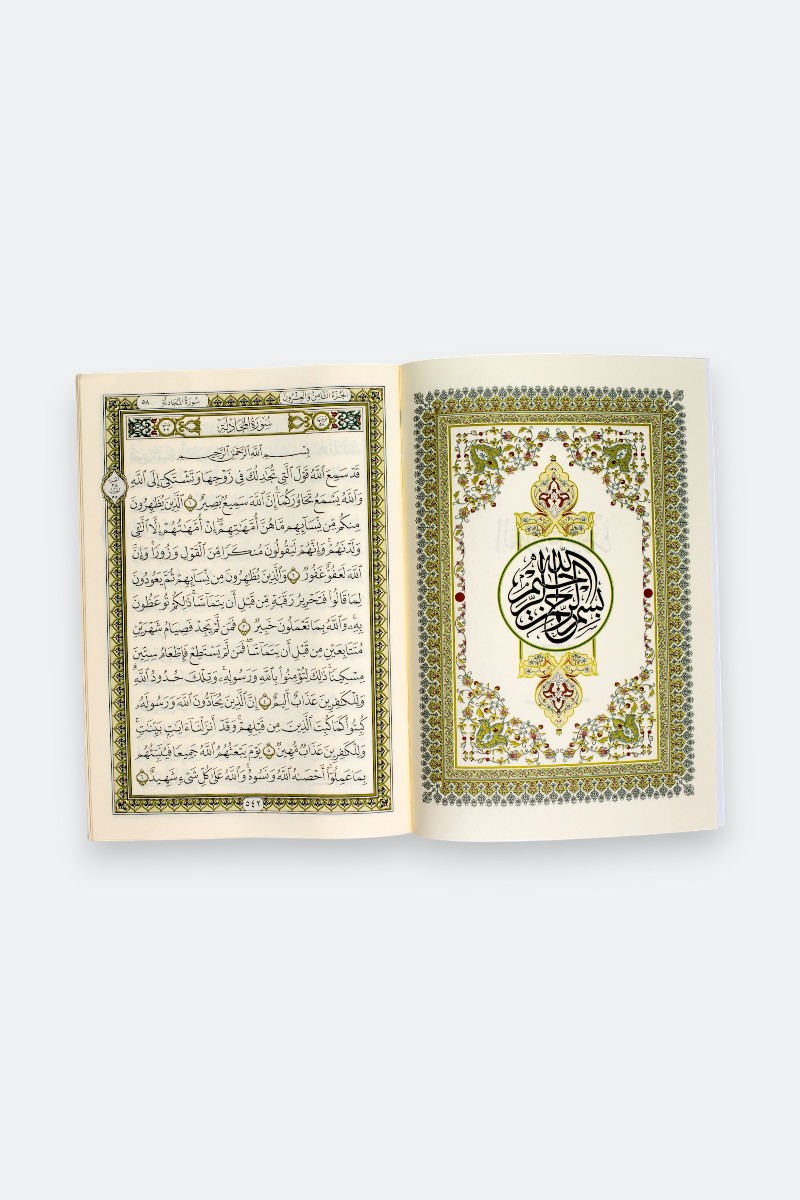 بسم الله الرحمن الرحيم
الجزء الثامن والعشرون
سورة المجادلة
٥٨
سُورَةُ المُجَادلَة
بِسْمِ ٱللَّهِ ٱلرَّحْمَٰنِ ٱلرَّحِيمِ
قَدْ سَمِعَ ٱللَّهُ قَوْلَ ٱلَّتِي تُجَٰدِلُكَ فِي زَوْجِهَا وَتَشْتَكِيٓ إِلَى ٱللَّهِ
وَٱللَّهُ يَسْمَعُ تَحَاوُرَكُمَآ إِنَّ ٱللَّهَ سَمِيعٌۢ بَصِيرٌ ١ ٱلَّذِينَ يُظَٰهِرُونَ
مِنكُم مِّن نِّسَآئِهِم مَّا هُنَّ أُمَّهَٰتِهِمْۖ إِنْ أُمَّهَٰتُهُمْ إِلَّا ٱلَّٰٓـِٔي
وَلَدْنَهُمْۚ وَإِنَّهُمْ لَيَقُولُونَ مُنكَرًا مِّنَ ٱلْقَوْلِ وَزُورًاۚ وَإِنَّ
ٱللَّهَ لَعَفُوٌّ غَفُورٌ ٢ وَٱلَّذِينَ يُظَٰهِرُونَ مِن نِّسَآئِهِمْ ثُمَّ يَعُودُونَ
لِمَا قَالُوا۟ فَتَحْرِيرُ رَقَبَةٍ مِّن قَبْلِ أَن يَتَمَآسَّاۚ ذَٰلِكُمْ تُوعَظُونَ
بِهِۦۚ وَٱللَّهُ بِمَا تَعْمَلُونَ خَبِيرٌ ٣ فَمَن لَّمْ يَجِدْ فَصِيَامُ شَهْرَيْنِ
مُتَتَابِعَيْنِ مِن قَبْلِ أَن يَتَمَآسَّاۖ فَمَن لَّمْ يَسْتَطِعْ فَإِطْعَامُ سِتِّينَ
مِسْكِينًاۚ ذَٰلِكَ لِتُؤْمِنُوا۟ بِٱللَّهِ وَرَسُولِهِۦۚ وَتِلْكَ حُدُودُ ٱللَّهِۗ
وَلِلْكَٰفِرِينَ عَذَابٌ أَلِيمٌ ٤ إِنَّ ٱلَّذِينَ يُحَآدُّونَ ٱللَّهَ وَرَسُولَهُۥ
كُبِتُوا۟ كَمَا كُبِتَ ٱلَّذِينَ مِن قَبْلِهِمْۚ وَقَدْ أَنزَلْنَآ ءَايَٰتٍۭ بَيِّنَٰتٍۚ
وَلِلْكَٰفِرِينَ عَذَابٌ مُّهِينٌ ٥ يَوْمَ يَبْعَثُهُمُ ٱللَّهُ جَمِيعًا فَيُنَبِّئُهُم
بِمَا عَمِلُوٓا۟ۚ أَحْصَىٰهُ ٱللَّهُ وَنَسُوهُۚ وَٱللَّهُ عَلَىٰ كُلِّ شَيْءٍ شَهِيدٌ ٦
٥٤٢